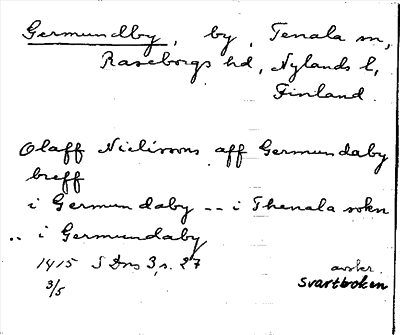 Germundby, by, Tenala sn,
Raseborgs hd, Nylands l,
Finland.
Olaff Niclissons aff Germundaby
breff
i Germundaby -- i Thenala sokn
.. i Germundaby
1415 SDns 3, s. 27 avskr.
3/5 Svartboken